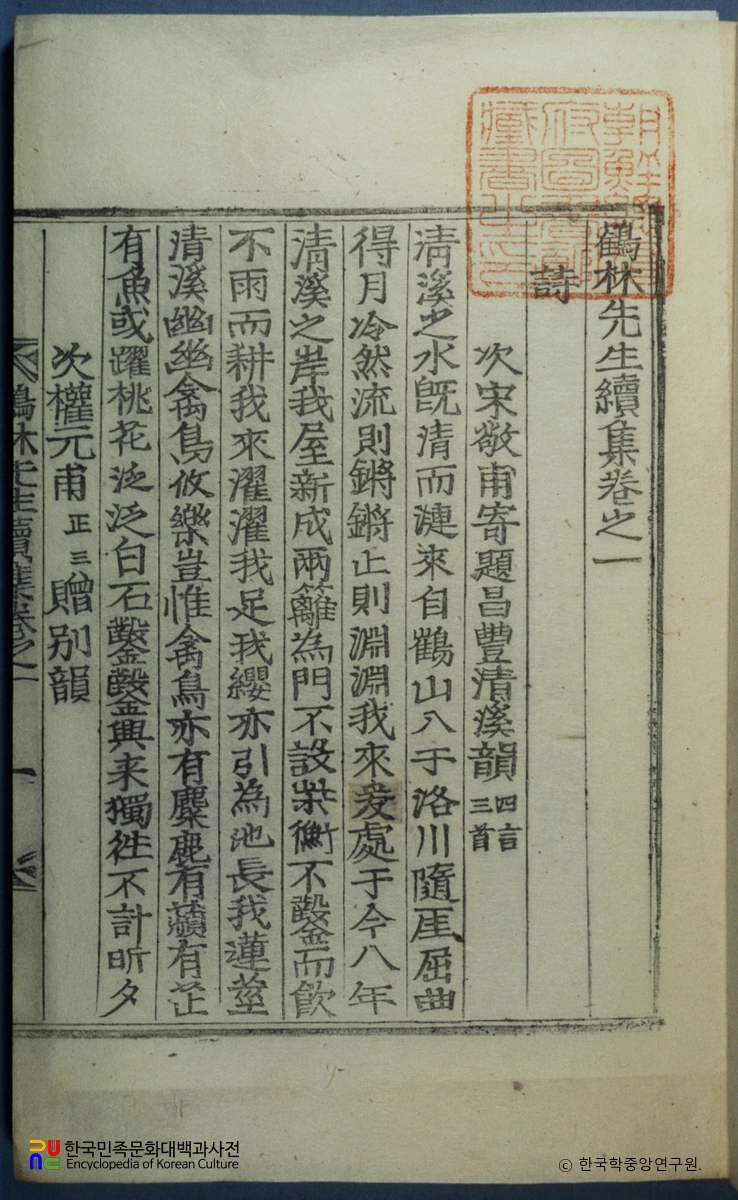 朝鮮總督府圖書館藏書之印
鶴林先生續集卷之一
詩
次宋敬甫寄題昌豐清溪韻四言三首
淸溪之水旣清而漣來自鶴山入于洛川隨厓屈曲
得月冷然流則鏘鏘止則淵淵我來爰處于今八年
清溪之岸我屋新成兩籬為門不設柴衡不鑿而飲
不雨而耕我來濯濯我足我纓亦引為池長我蓮莖
清溪幽幽禽鳥攸樂豈惟禽鳥亦有麋鹿有蘋有芷
有魚或躍桃花泛泛白石鑿鑿興来獨徃不計昕夕
次權元甫正三贈别韻
鶴林先生續集卷之一 一
한국민족문화대백과사전
Encyclopedia of Korean Culture
© 한국학중앙연구원.